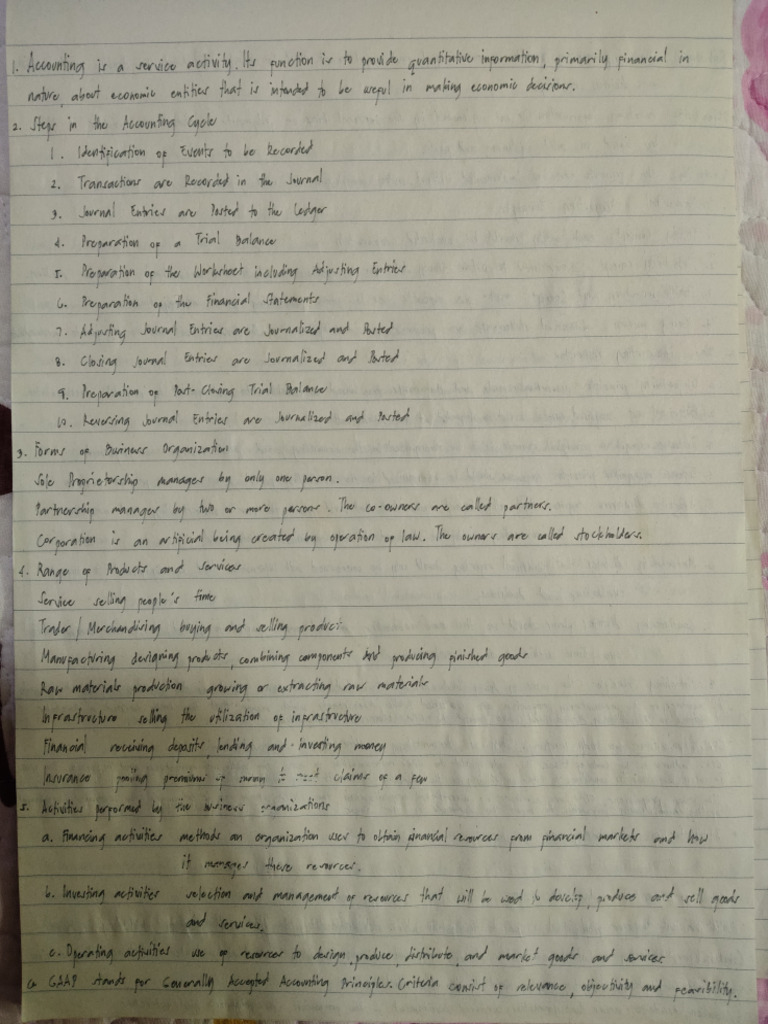 1. Accounting is a service activity. Its function is to provide quantitative information, primarily financial in
nature, about economic entities that is intended to be useful in making economic decisions.
2. Steps in the Accounting Cycle
1. Identification of Events to be Recorded
2. Transactions are Recorded in the Journal
3. Journal Entries are Posted to the Ledger
4. Preparation of a Trial Balance
5. Preparation of the Worksheet including Adjusting Entries
6. Preparation of the Financial Statements
7. Adjusting Journal Entries are Journalized and Posted
8. Closing Journal Entries are Journalized and Posted
9. Preparation of Post-Closing Trial Balance
10. Reversing Journal Entries are Journalized and Posted
3. Forms of Business Organization
Sole Proprietorship manages by only one person.
Partnership manages by two or more persons. The co-owners are called partners.
Corporation is an artificial being created by operation of law. The owners are called stockholders.
4. Range of Products and Services
Service selling people's time
Trader / Merchandising buying and selling products
Manufacturing designing products, combining components and producing finished goods
Raw materials production growing or extracting raw materials
Infrastructure selling the utilization of infrastructure
Financial receiving deposits, lending and investing money
Insurance pooling premiums of many to meet claims of a few
5. Activities performed by the business organizations
a. Financing activities methods an organization uses to obtain financial resources from financial markets and how
it manages these resources.
b. Investing activities selection and management of resources that will be used to develop, produce and sell goods
and services.
c. Operating activities use of resources to design, produce, distribute, and market goods and services
6. GAAP stands for Generally Accepted Accounting Principles. Criteria consist of relevance, objectivity and feasibility.